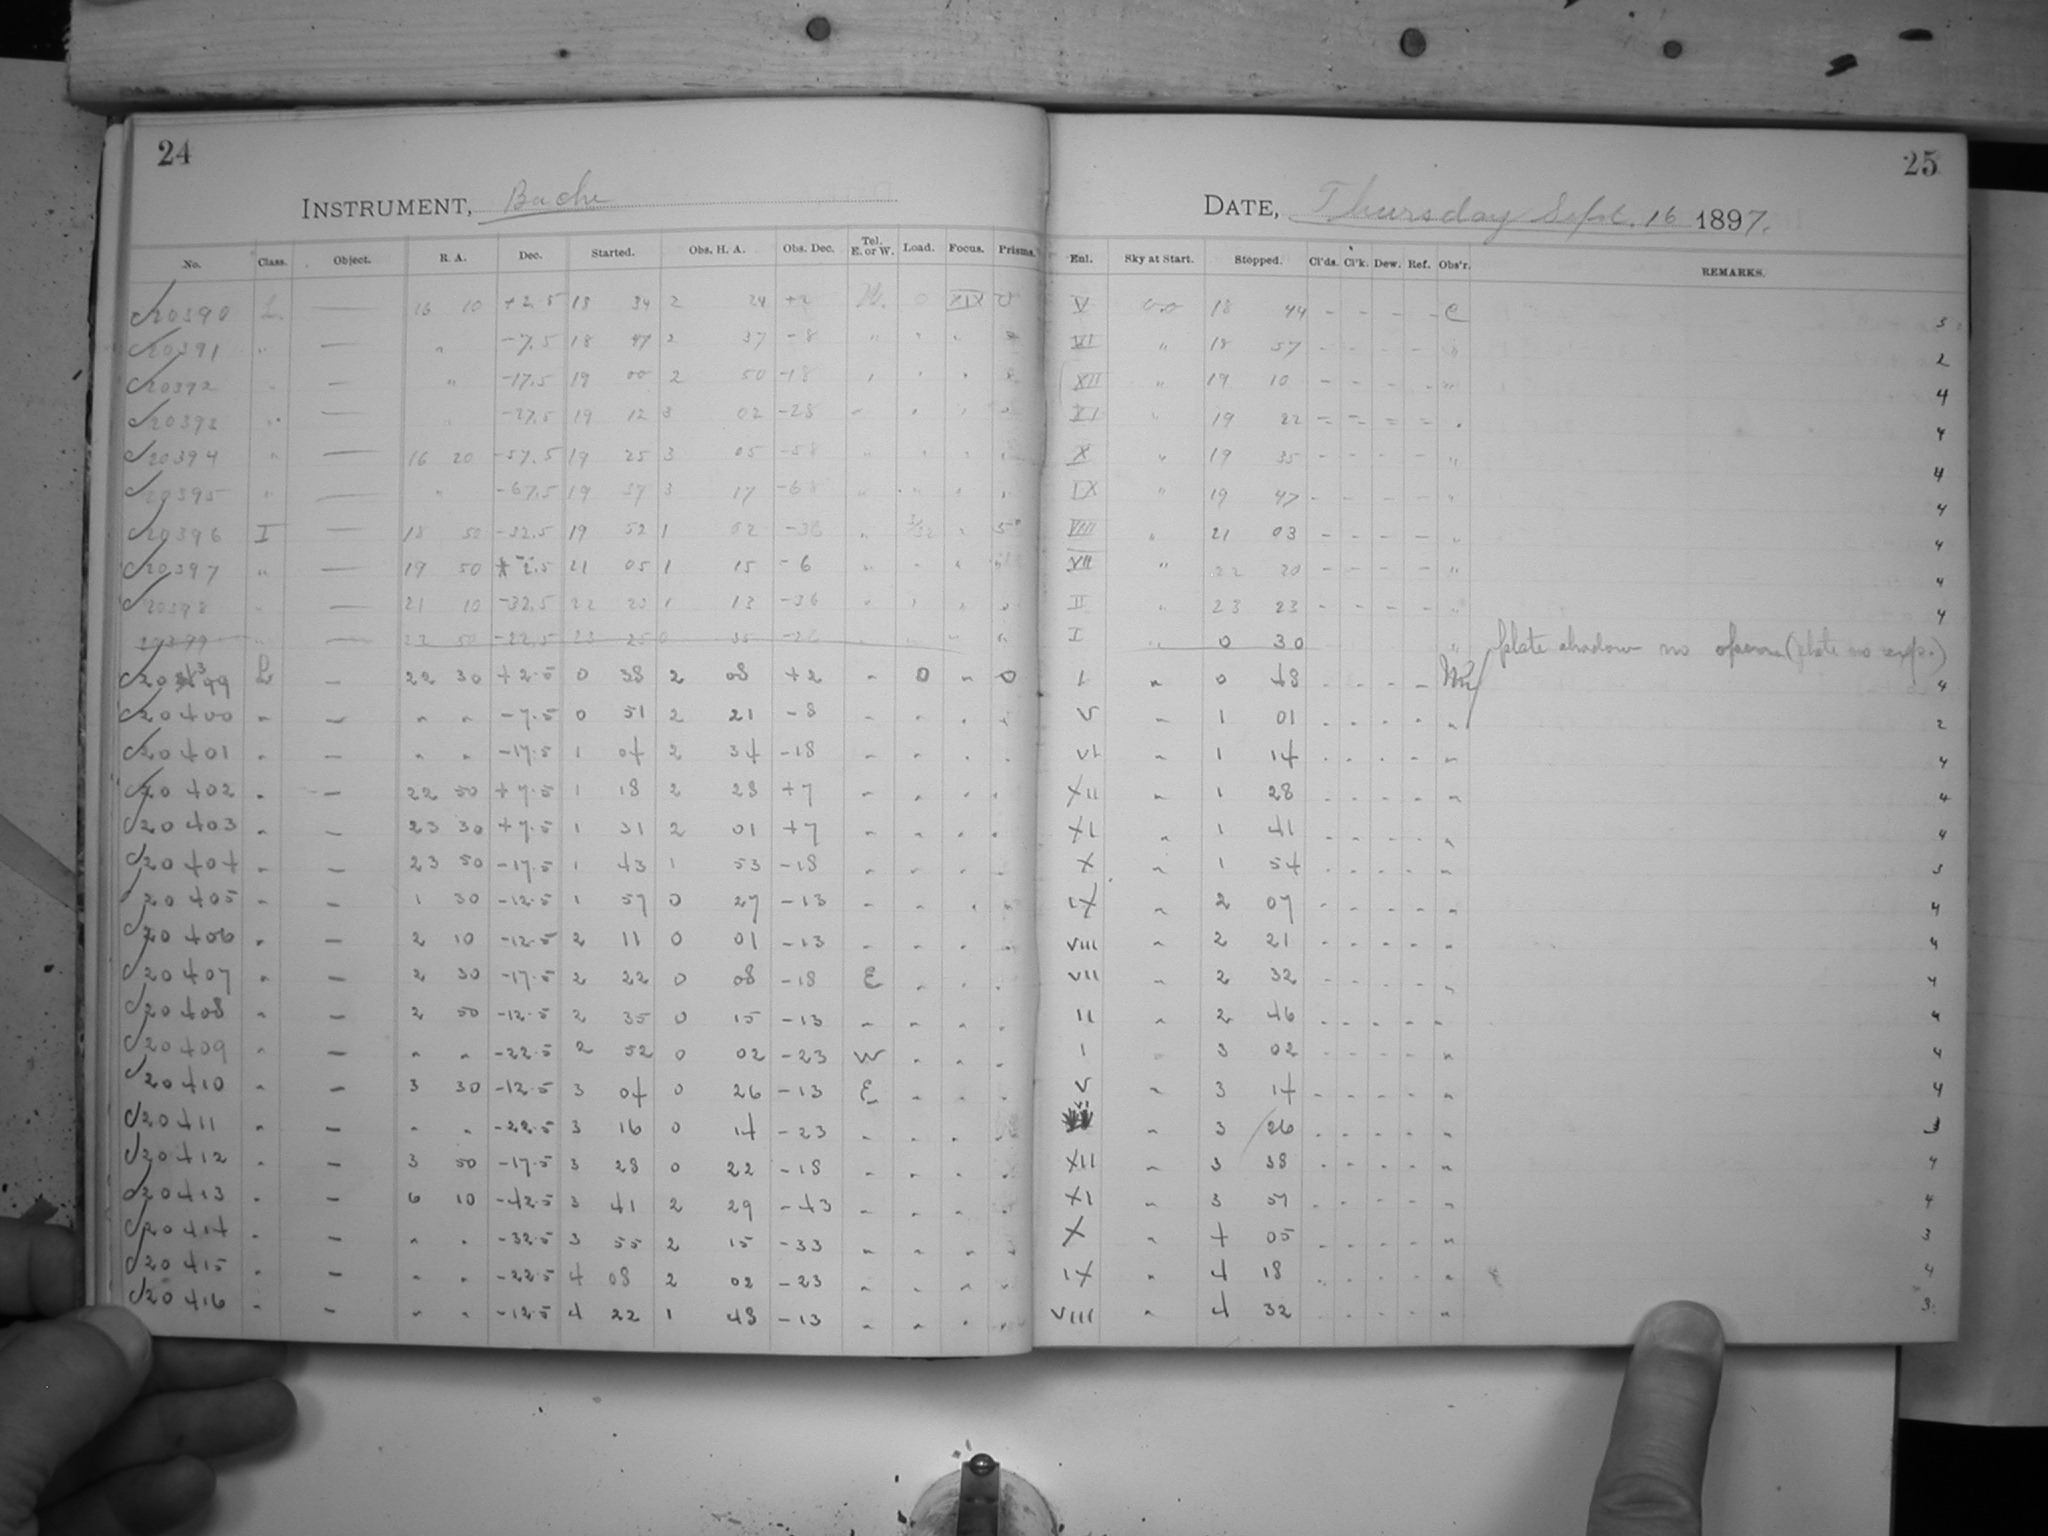 24
INSTRUMENT, Bache
No. Class. Object. R. A. Dec. Started. Obs. H. A. Obs. Dec. Tel. E. or W. Load. Focus. Prisms.
20390 L — 16 10 +2.5 18 34 2 24 +2 W. 0 XIX 0
20391 " — " -7.5 18 47 2 37 -8 " " " "
20392 " — " -17.5 19 00 2 50 -18 " " " "
20393 " — " -27.5 19 12 3 02 -28 " " " "
20394 " — 16 20 -57.5 19 25 3 05 -58 " " " "
20395 " — " -67.5 19 37 3 17 -68 " " " "
20396 I — 18 50 -32.5 19 52 1 02 -36 " " 5"
20397 " — 19 50 -2.5 21 05 1 15 -6 " " " "
20398 " — 21 10 -32.5 22 23 1 13 -36 " " " "
20399 " — 22 50 -22.5 23 25 0 35 -26 " " " "
20399 L — 22 30 +2.5 0 38 2 08 +2 " 0 " 0
20400 " — " " -7.5 0 51 2 21 -8 " " " "
20401 " — " " -17.5 1 04 2 34 -18 " " " "
20402 " — 22 50 +7.5 1 18 2 28 +7 " " " "
20403 " — 23 30 +7.5 1 31 2 01 +7 " " " "
20404 " — 23 50 -17.5 1 43 1 53 -18 " " " "
20405 " — 1 30 -12.5 1 57 0 27 -13 " " " "
20406 " — 2 10 -12.5 2 11 0 01 -13 " " " "
20407 " — 2 30 -17.5 2 22 0 08 -18 E " " "
20408 " — 2 50 -12.5 2 35 0 15 -13 " " " "
20409 " — " " -22.5 2 52 0 02 -23 W " " "
20410 " — 3 30 -12.5 3 04 0 26 -13 E " " "
20411 " — " " -22.5 3 16 0 14 -23 " " " "
20412 " — 3 50 -17.5 3 28 0 22 -18 " " " "
20413 " — 6 10 -42.5 3 41 2 29 -43 " " " "
20414 " — " " -32.5 3 55 2 15 -33 " " " "
20415 " — " " -22.5 4 08 2 02 -23 " " " "
20416 " — " " -12.5 4 22 1 48 -13 " " " "
25
DATE, Thursday Sept. 16 1897.
Enl. Sky at Start. Stopped. Cl'ds. Cl'k. Dew. Ref. Obs'r. REMARKS.
V 18 44 - - - - C 3
VI " 18 57 - - - - " 2
XII " 19 10 - - - - " 4
XI " 19 22 - - - - " 4
X " 19 35 - - - - " 4
IX " 19 47 - - - - " 4
VIII " 21 03 - - - - " 4
VII " 22 20 - - - - " 4
II " 23 23 - - - - " 4
I " 0 30 " plate shadow no (plate no exp.)
I " 0 48 - - - - 4
V " 1 01 - - - - " 2
VI " 1 14 - - - - " 4
XII " 1 28 - - - - " 4
XI " 1 41 - - - - " 4
X " 1 54 - - - - " 3
IX " 2 07 - - - - " 4
VIII " 2 21 - - - - " 4
VII " 2 32 - - - - " 4
II " 2 46 - - - - " 4
I " 3 02 - - - - " 4
V " 3 14 - - - - " 4
VI " 3 26 - - - - " 3
XII " 3 38 - - - - " 4
XI " 3 51 - - - - " 4
X " 4 05 - - - - " 3
IX " 4 18 - - - - " 4
VIII " 4 32 - - - - " 3